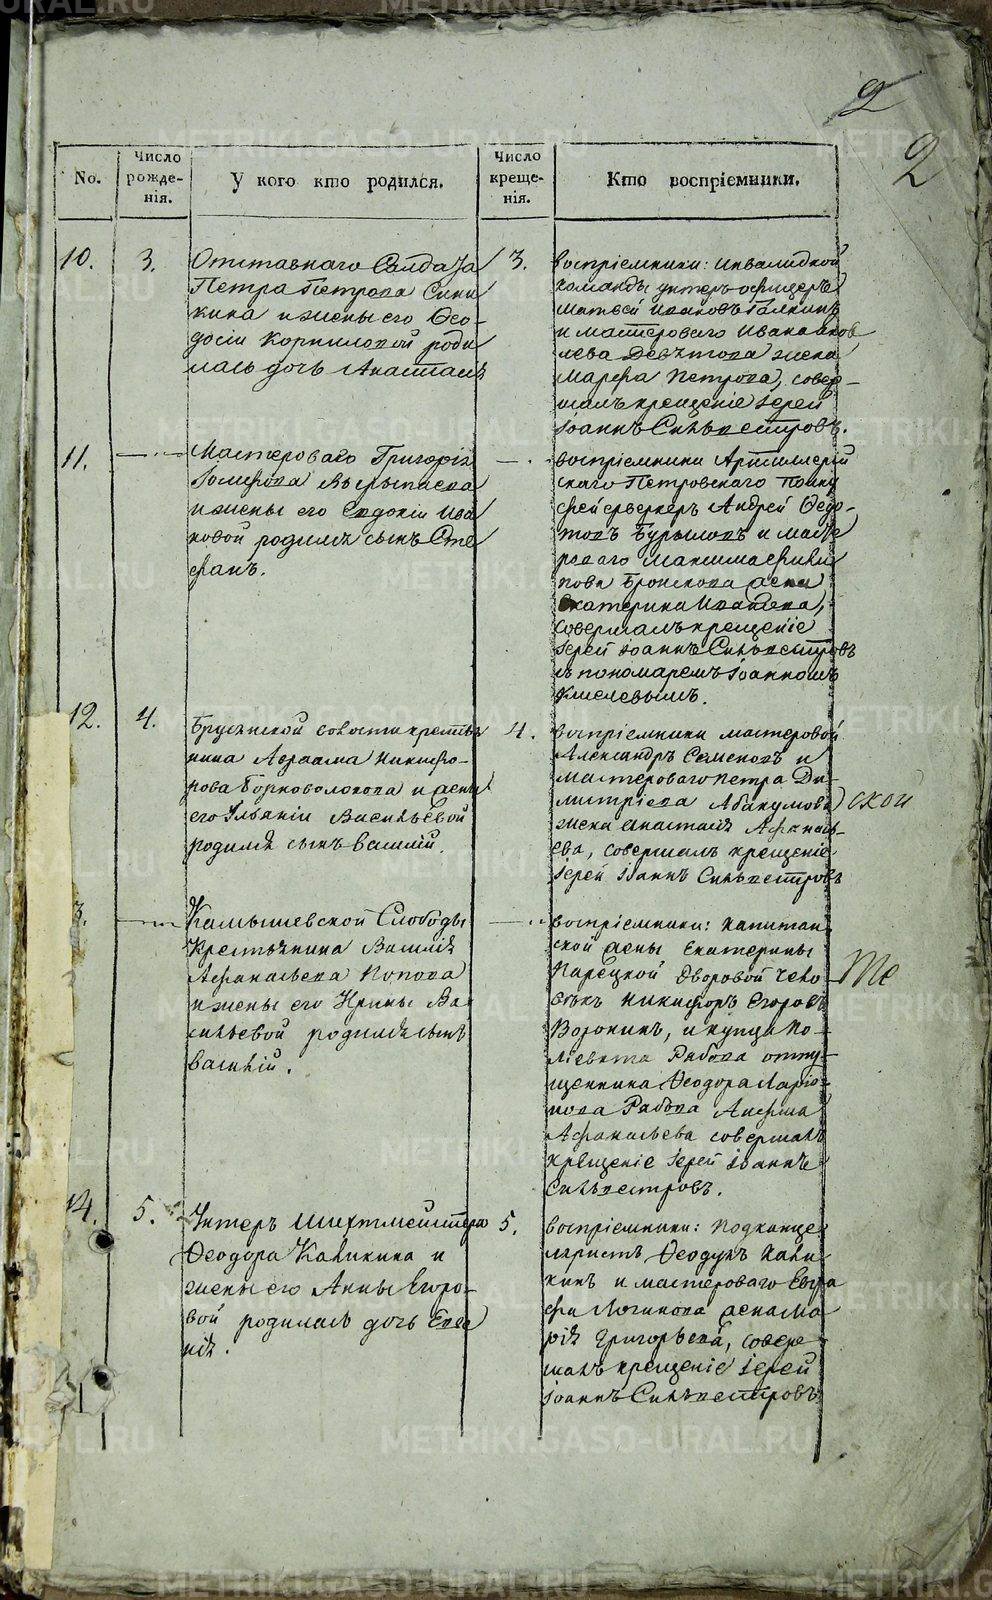 2
2
No.
Число рожде-нія.
У кого кто родился.
Число креще-нія.
Кто воспріемники.
10.
3.
Отставнаго Солдата
Петра Петрова Сини
кина и жены его Ѳео-
досіи Корниловой роди
лась дочь Анастасія
3.
воспріемники: инвалидной
команды унтеръ-офицеръ
Матвей Ивановъ Галкинъ
и мастероваго Ивана Яков
лева Девятова жена
Марфа Петрова, совер-
шалъ крещеніе Іерей
Іоаннъ Сильвестровъ.
11.
Мастероваго Григорія
и жены его Евдокіи Ива
новой родился сынъ Сте
фанъ.
воспріемники Артиллерій
скаго Петровскаго полку
фейерверкеръ Андрей Ѳедо-
товъ Бурыловъ и масте
роваго Максима Филип
пова жена
Екатерина Иванова,
совершалъ крещеніе
Іерей Іоаннъ Сильвестровъ
съ пономаремъ Іоанномъ
Киселевымъ.
12.
4.
Брусянской волости крестья
нина Авраама Никифо-
рова Борноволокова и жены
его Ульяніи Васильевой
родился сынъ Василій.
4.
воспріемники мастеровой
Александръ Семеновъ и
мастероваго Петра Ди-
митріева Абакумова
ской
жена Анастасія Афанась-
ева, совершалъ крещеніе
Іерей Іоаннъ Сильвестровъ
3.
Камышевской Слободы
Крестьянина Василія
Афанасьева Попова
и жены его Ирины Ва
сильевой родился сынъ
Василій.
воспріемники: Капитан
ской жены Екатерины
Парецкой дворовой чело
те
вѣкъ Никифоръ Егоровъ
Воронинъ, и купца По-
ліевкта Рабова отпу-
щенника Ѳеодора Ларіо-
нова Рабова Анфиса
Афанасьева совершалъ
крещеніе Іерей Іоаннъ
Сильвестровъ.
14.
5.
Унтеръ Шихтмейстера
Ѳеодора Каликина и
жены его Анны Егоро-
вой родилась дочь Евге
нія.
5.
воспріемники: Подканце
ляристъ Ѳеодулъ Кали
кинъ и мастероваго Евгра
фа Логинова жена Ма
рія Григорьева, совер-
шалъ крещеніе Іерей
Іоаннъ Сильвестровъ
METRIKI.GASO-URAL.RU